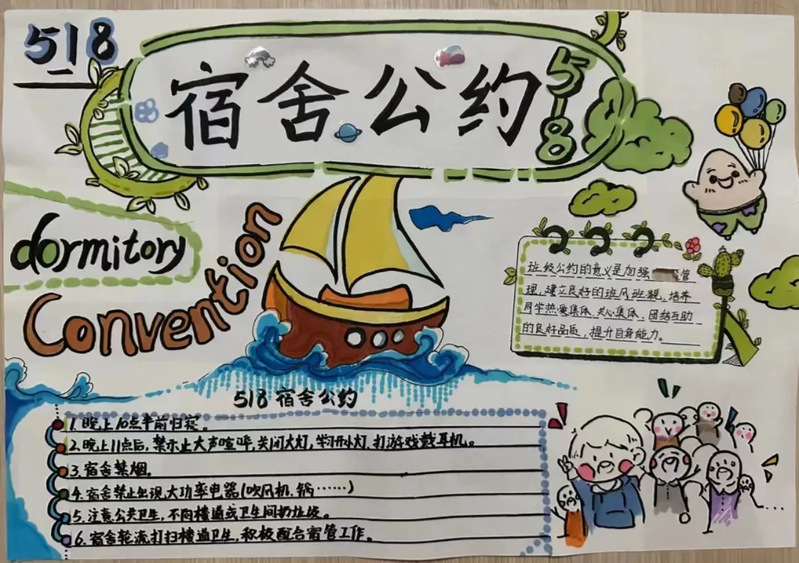 518
宿舍公约
518
dormitory
Convention
班级公约的意义是加强 管
理,建立良好的班风班貌,培养
同学热爱集体,关心集体,团结互助
的良好品质,提升自身能力。
518 宿舍公约
1.晚上10点半前归寝。
2.晚上11点后,禁示止大声喧哗,关闭大灯,学习开小灯,打游戏戴耳机。
3.宿舍禁烟。
4.宿舍禁止出现大功率电器(吹风机、锅……)
5.注意公共卫生,不向楼道或卫生间扔垃圾。
6.宿舍轮流打扫楼道卫生,积极配合宿管工作。